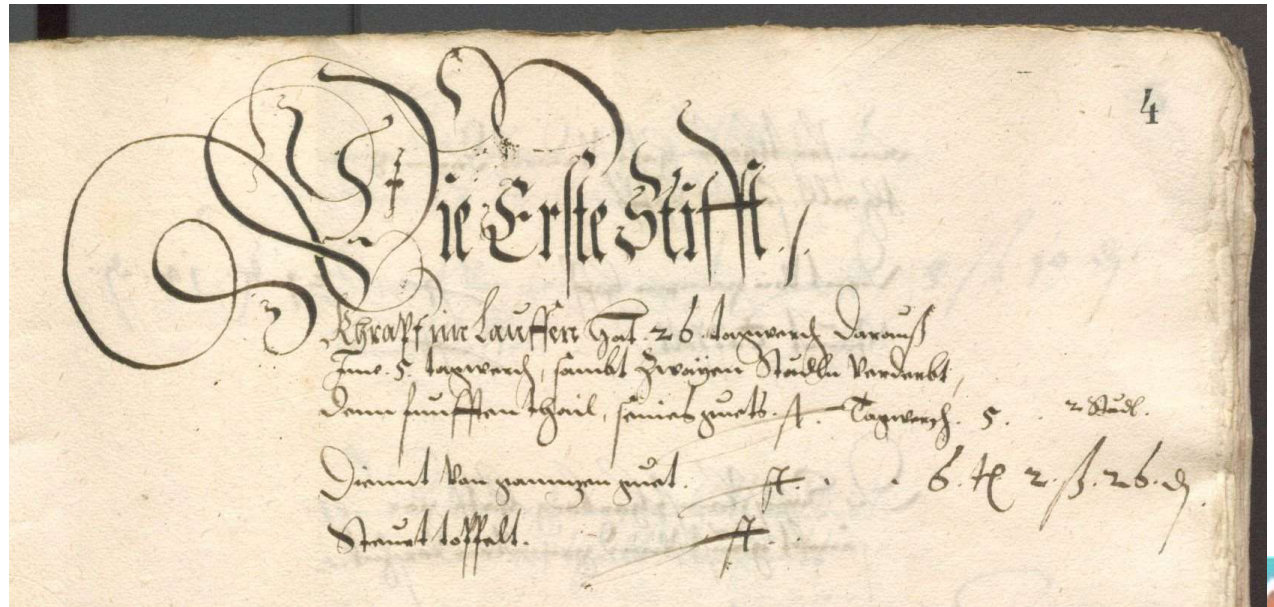 4
Die Erste Stifft.
Khrapf im Lauffen hat .26. tagwerch darauß
Ime .5. tagwerch, sambt Zwayen Städln verderbt,
denn funfften thail, seines guets. Tagwerch .5. 2 Städl.
Diennt von ganntzen guet. 6. ℔ 2. ß. 26. ₰
Steuert toppelt.